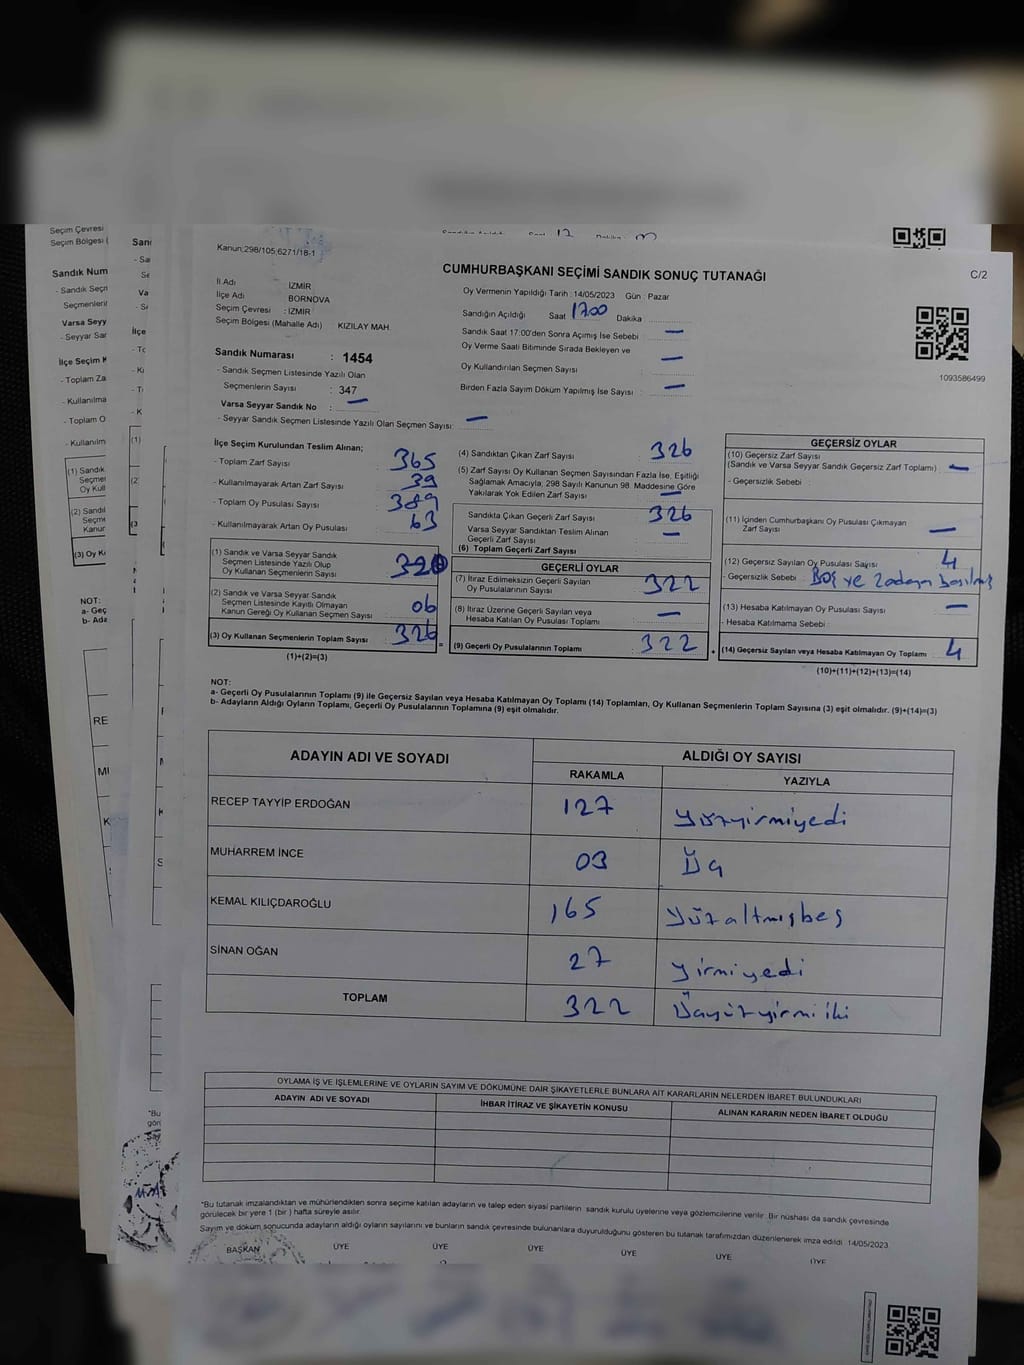 Seçim Çevresi
Seçim Bölgesi (
Sandık Num
- Sandık Seçn
Seçmenlerin
Varsa Seyy
- Seyyar San
İlçe Seçim K
- Toplam Za
- Kullanılma
- Toplam O
- Kullanılm
(1) Sandık
Seçme
Oy Kull
(2) Sandı
Seçm
Kanur
(3) Oy Kı
NOT:
a- Geç
b- Ada
Kanun:298/105,6271/18-1
C/2
CUMHURBAŞKANI SEÇİMİ SANDIK SONUÇ TUTANAĞI
İl Adı : İZMİR
İlçe Adı BORNOVA
Seçim Çevresi : İZMİR
Seçim Bölgesi (Mahalle Adı) KIZILAY MAH.
Oy Vermenin Yapıldığı Tarih : 14/05/2023 Gün : Pazar
Sandığın Açıldığı Saat 17.00 Dakika
Sandık Saat 17:00'den Sonra Açımış İse Sebebi : —
Oy Verme Saati Bitiminde Sırada Bekleyen ve
Oy Kullandırılan Seçmen Sayısı : —
Birden Fazla Sayım Döküm Yapılmış İse Sayısı : —
1093586499
Sandık Numarası : 1454
- Sandık Seçmen Listesinde Yazılı Olan
Seçmenlerin Sayısı : 347
Varsa Seyyar Sandık No : —
- Seyyar Sandık Seçmen Listesinde Yazılı Olan Seçmen Sayısı: —
İlçe Seçim Kurulundan Teslim Alınan;
- Toplam Zarf Sayısı : 365
- Kullanılmayarak Artan Zarf Sayısı : 39
- Toplam Oy Pusulası Sayısı : 389
- Kullanılmayarak Artan Oy Pusulası : 63
(1) Sandık ve Varsa Seyyar Sandık
Seçmen Listesinde Yazılı Olup
Oy Kullanan Seçmenlerin Sayısı : 320
(2) Sandık ve Varsa Seyyar Sandık
Seçmen Listesinde Kayıtlı Olmayan
Kanun Gereği Oy Kullanan Seçmen Sayısı : 06
(3) Oy Kullanan Seçmenlerin Toplam Sayısı : 326
(1)+(2)=(3)
(4) Sandıktan Çıkan Zarf Sayısı : 326
(5) Zarf Sayısı Oy Kullanan Seçmen Sayısından Fazla İse, Eşitliği
Sağlamak Amacıyla, 298 Sayılı Kanunun 98. Maddesine Göre
Yakılarak Yok Edilen Zarf Sayısı : —
Sandıkta Çıkan Geçerli Zarf Sayısı : 326
Varsa Seyyar Sandıktan Teslim Alınan
Geçerli Zarf Sayısı : —
(6) Toplam Geçerli Zarf Sayısı
GEÇERLİ OYLAR
(7) İtiraz Edilmeksizin Geçerli Sayılan
Oy Pusulalarının Sayısı : 322
(8) İtiraz Üzerine Geçerli Sayılan veya
Hesaba Katılan Oy Pusulası Toplamı : —
(9) Geçerli Oy Pusulalarının Toplamı : 322
GEÇERSİZ OYLAR
(10) Geçersiz Zarf Sayısı
(Sandık ve Varsa Seyyar Sandık Geçersiz Zarf Toplamı) : —
- Geçersizlik Sebebi :
(11) İçinden Cumhurbaşkanı Oy Pusulası Çıkmayan
Zarf Sayısı : —
(12) Geçersiz Sayılan Oy Pusulası Sayısı : 4
- Geçersizlik Sebebi : Boş ve basılmış
(13) Hesaba Katılmayan Oy Pusulası Sayısı : —
- Hesaba Katılmama Sebebi :
(14) Geçersiz Sayılan veya Hesaba Katılmayan Oy Toplamı : 4
(10)+(11)+(12)+(13)=(14)
NOT:
a- Geçerli Oy Pusulalarının Toplamı (9) ile Geçersiz Sayılan veya Hesaba Katılmayan Oy Toplamı (14) Toplamları, Oy Kullanan Seçmenlerin Toplam Sayısına (3) eşit olmalıdır. (9)+(14)=(3)
b- Adayların Aldığı Oyların Toplamı, Geçerli Oy Pusulalarının Toplamına (9) eşit olmalıdır.
ADAYIN ADI VE SOYADI ALDIĞI OY SAYISI
RAKAMLA YAZIYLA
RECEP TAYYİP ERDOĞAN 127 yüzyirmiyedi
MUHARREM İNCE 03 Üç
KEMAL KILIÇDAROĞLU 165 yüzaltmışbeş
SİNAN OĞAN 27 yirmiyedi
TOPLAM 322 Üçyüzyirmiiki
OYLAMA İŞ VE İŞLEMLERİNE VE OYLARIN SAYIM VE DÖKÜMÜNE DAİR ŞİKAYETLERLE BUNLARA AİT KARARLARIN NELERDEN İBARET BULUNDUKLARI
ADAYIN ADI VE SOYADI İHBAR İTİRAZ VE ŞİKAYETİN KONUSU ALINAN KARARIN NEDEN İBARET OLDUĞU
*Bu tutanak imzalandıktan ve mühürlendikten sonra seçime katılan adayların ve talep eden siyasi partilerin sandık kurulu üyelerine veya gözlemcilerine verilir. Bir nüshası da sandık çevresinde
görülecek bir yere 1 (bir ) hafta süreyle asılır.
Sayım ve döküm sonucunda adayların aldığı oyların sayılarını ve bunların sandık çevresinde bulunanlara duyurulduğunu gösteren bu tutanak tarafımızdan düzenlenerek imza edildi. 14/05/2023
BAŞKAN ÜYE ÜYE ÜYE ÜYE ÜYE ÜYE